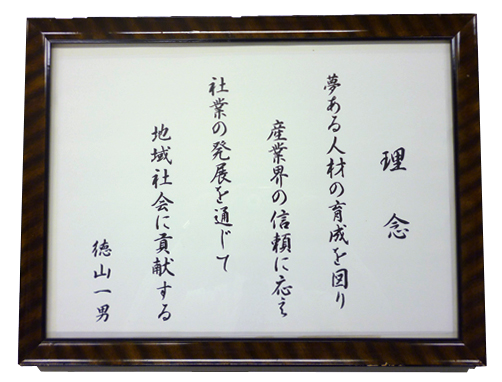 理念
夢ある人材の育成を図り
産業界の信頼に応え
社業の発展を通じて
地域社会に貢献する
徳山一男